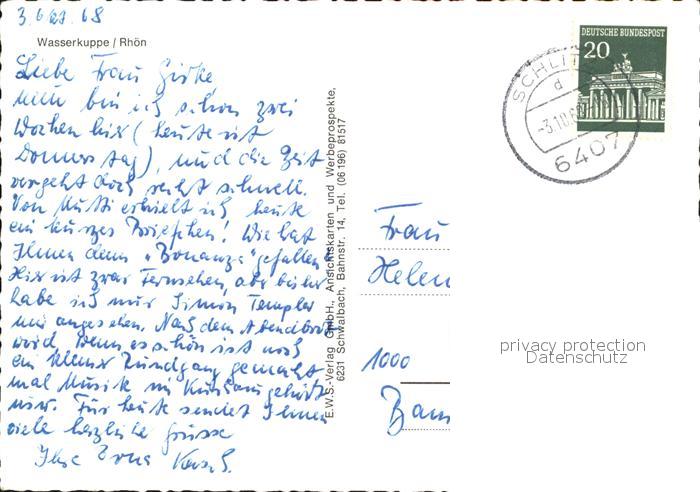 3. Okt. 68
Wasserkuppe / Rhön
Liebe Frau
nun bin ich schon zwei
Wochen hier (heute ist
Donnerstag), und die Zeit
vergeht doch recht schnell.
Von Mutti erhielt ich heute
ein kurzes Briefchen! Wie hat
Ihnen denn „Bonanza" gefallen?
Hier ist zwar Fernsehen, aber bisher
habe ich nur Simon Templer
mir angesehen. Nach dem Abendbrot
wird, wenn es schön ist noch
ein kleiner Rundgang gemacht
mal Musik im Kurhaus gehört
usw. Für heute sendet Ihnen
viele herzliche Grüsse
Ihre Erna
E.W.S.-Verlag GmbH., Ansichtskarten und Werbeprospekte,
6231 Schwalbach, Bahnstr. 14, Tel. (06196) 81517
DEUTSCHE BUNDESPOST
20
SCHLIT
d
-3.10.6
6407
Frau
Helen
1000
privacy protection
Datenschutz